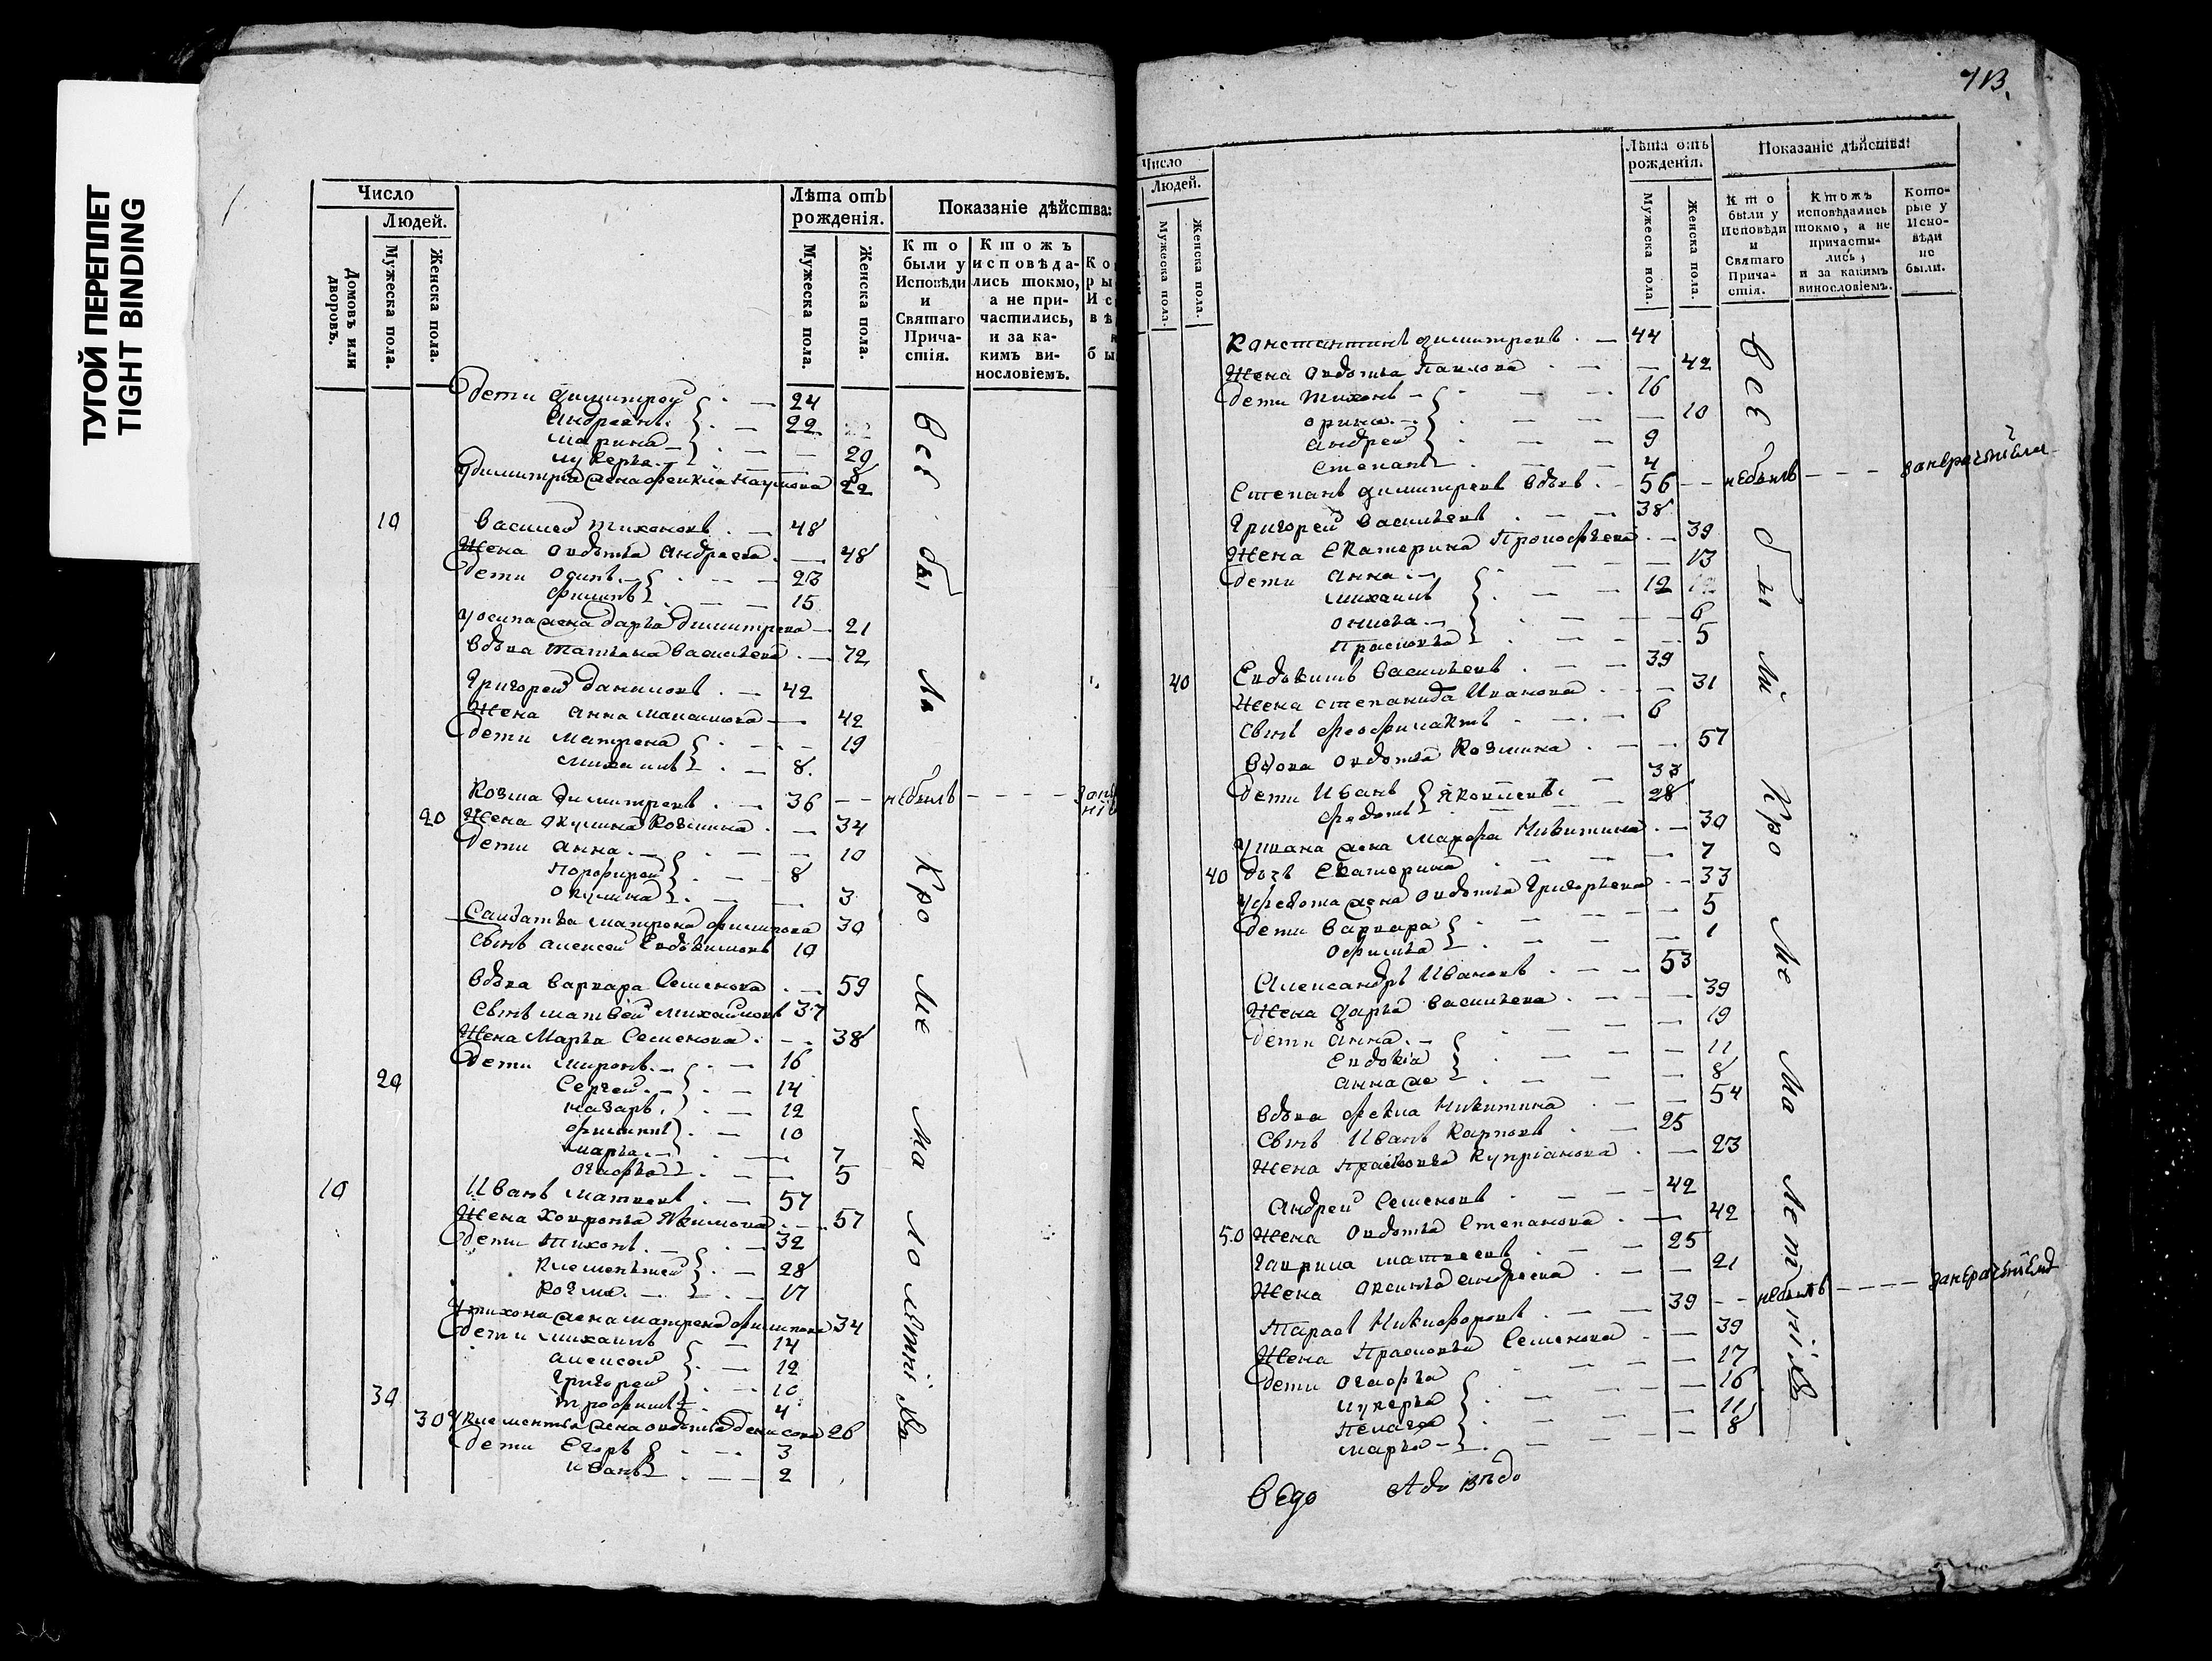 ТУГОЙ ПЕРЕПЛЕТ
TIGHT BINDING
Число
Людей.
Домовъ или дворовъ.
Мужеска пола.
Женска пола.
Лѣта отъ рожденія.
Мужеска пола.
Женска пола.
Показаніе дѣйства:
Кто были у Исповѣди и Святаго Прича-стія.
Ктожъ исповѣда-лись токмо, а не при-частились, и за ка-кимъ ви-нословіемъ.
Дети Димитрей 24
Андреянъ 22
Марина 29
Лукерья 8
У Димитрия жена Фекла Наумова 22
10 Василей Тихоновъ 48
Жена Овдотья Андреева 48
Дети Осипъ 23
Филипъ 15
У Осипа жена Дарья Димитрева 21
Вдова Татьяна Васильева 72
Григорей Даниловъ 42
Жена Анна 42
Дети Матрена 19
Михаилъ 8
Козма Димитревъ 36 небылъ
20 Жена Акулина Козмина 34
Дети Анна 10
Порфирей 8
Окулина 3
Салдатка Матрона Филипова 30
Сынъ Алексей Евдокимовъ 10
Вдова Варвара Семенова 59
Сынъ Матвей Михайловъ 37
Жена Марья Семенова 38
Дети Миронъ 16
20 Сергей 14
Назаръ 12
Филипъ 10
Марья 7
Огафья 5
10 Иванъ Матвеевъ 57
Жена Ховронья Якимова 57
Дети Тихонъ 32
Клементей 28
Козма 17
У Тихона жена Матрена Филипова 34
Дети Михаилъ 14
Алексей 12
Григорей 10
30 Трофимъ 4
30 У Клементья жена Овдотья Денисова 26
Дети Егоръ 3
Иванъ 2
Все были кроме малолѣтнiхъ
713
Число
Людей.
Мужеска пола.
Женска пола.
Лѣта отъ рожденія.
Мужеска пола.
Женска пола.
Показаніе дѣйства:
Кто были у Исповѣди и Святаго Прича-стія.
Ктожъ исповѣдались токмо, а не причасти-лись, и за какимъ винословіемъ.
Кото-рые у Испо-вѣди не были.
Канстантинъ Димитревъ 44
Жена Овдотья Павлова 42
Дети Тихонъ 16
Орина 10
Андрей 9
Степанъ 4
Степанъ Димитревъ вдовъ 56 небылъ
Григорей Васильевъ 38
Жена Екатерина Прокофьева 39
Дети Анна 13
Михаилъ 12
6
Прасковья 5
40 Евдокимъ Васильевъ 39
Жена Степанида Иванова 31
Сынъ Феофилактъ 6
Вдова Овдотья Козмина 57
Дети Иванъ Яковлевъ 33
Федотъ 28
У Ивана жена Марфа Никитина 30
40 Дочь Екатерина 7
У Федота жена Овдотья Григорьева 33
Дети Варвара 5
Офимья 1
Александръ Ивановъ 53
Жена Дарья Васильева 39
Дети Анна 19
Евдокiа 11
Анна же 8
Вдова Фекла Никитина 54
Сынъ Иванъ Карповъ 25
Жена Прасковья Купрiанова 23
Андрей Семеновъ 42
50 Жена Овдотья Степанова 42
Гаврила Матвеевъ 25
Жена Оксинья Андреева 21
Тарасъ Никифоровъ 39 небылъ
Жена Прасковья Семенова 39
Дети Огафья 17
Лукерья 16
Пелагея 11
Марья 8
Все были кроме малетнiхъ